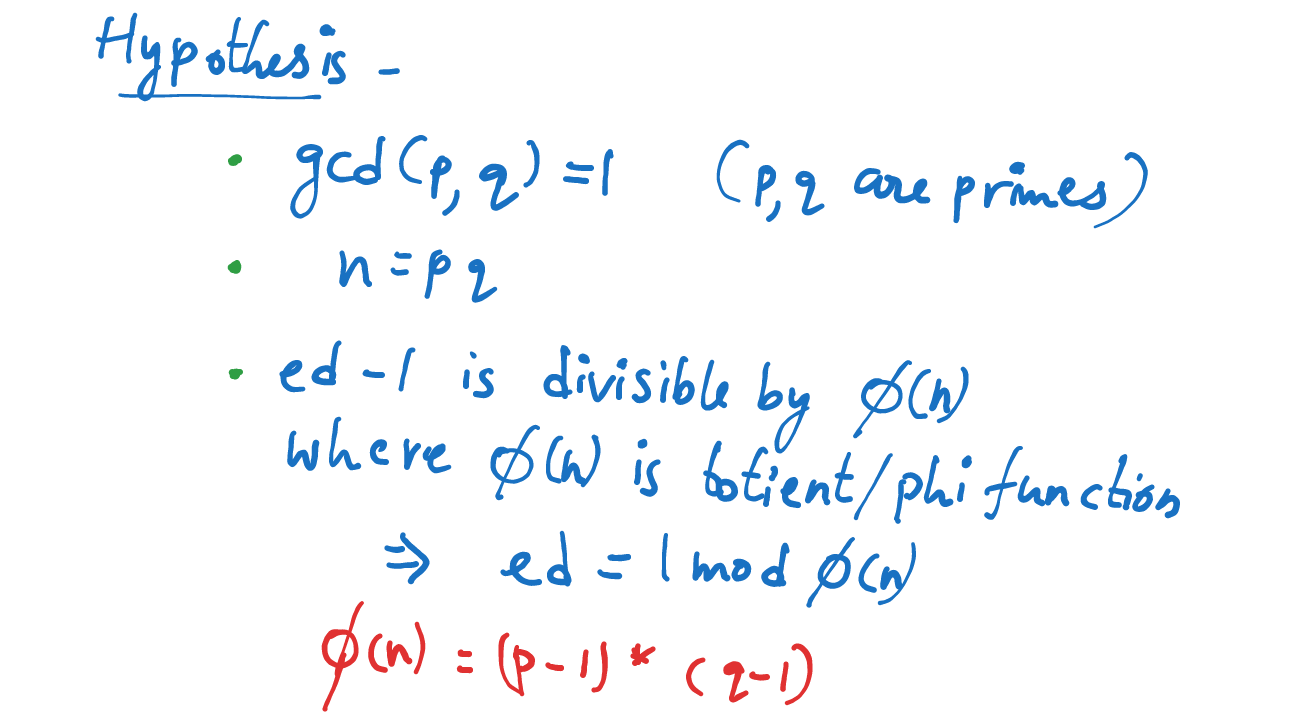 Hypothesis -
• gcd(p, q) = 1 (p, q are primes)
• n = p q
• ed - 1 is divisible by ϕ(n)
where ϕ(n) is totient/phi function
⇒ ed = 1 mod ϕ(n)
ϕ(n) = (p-1) * (q-1)